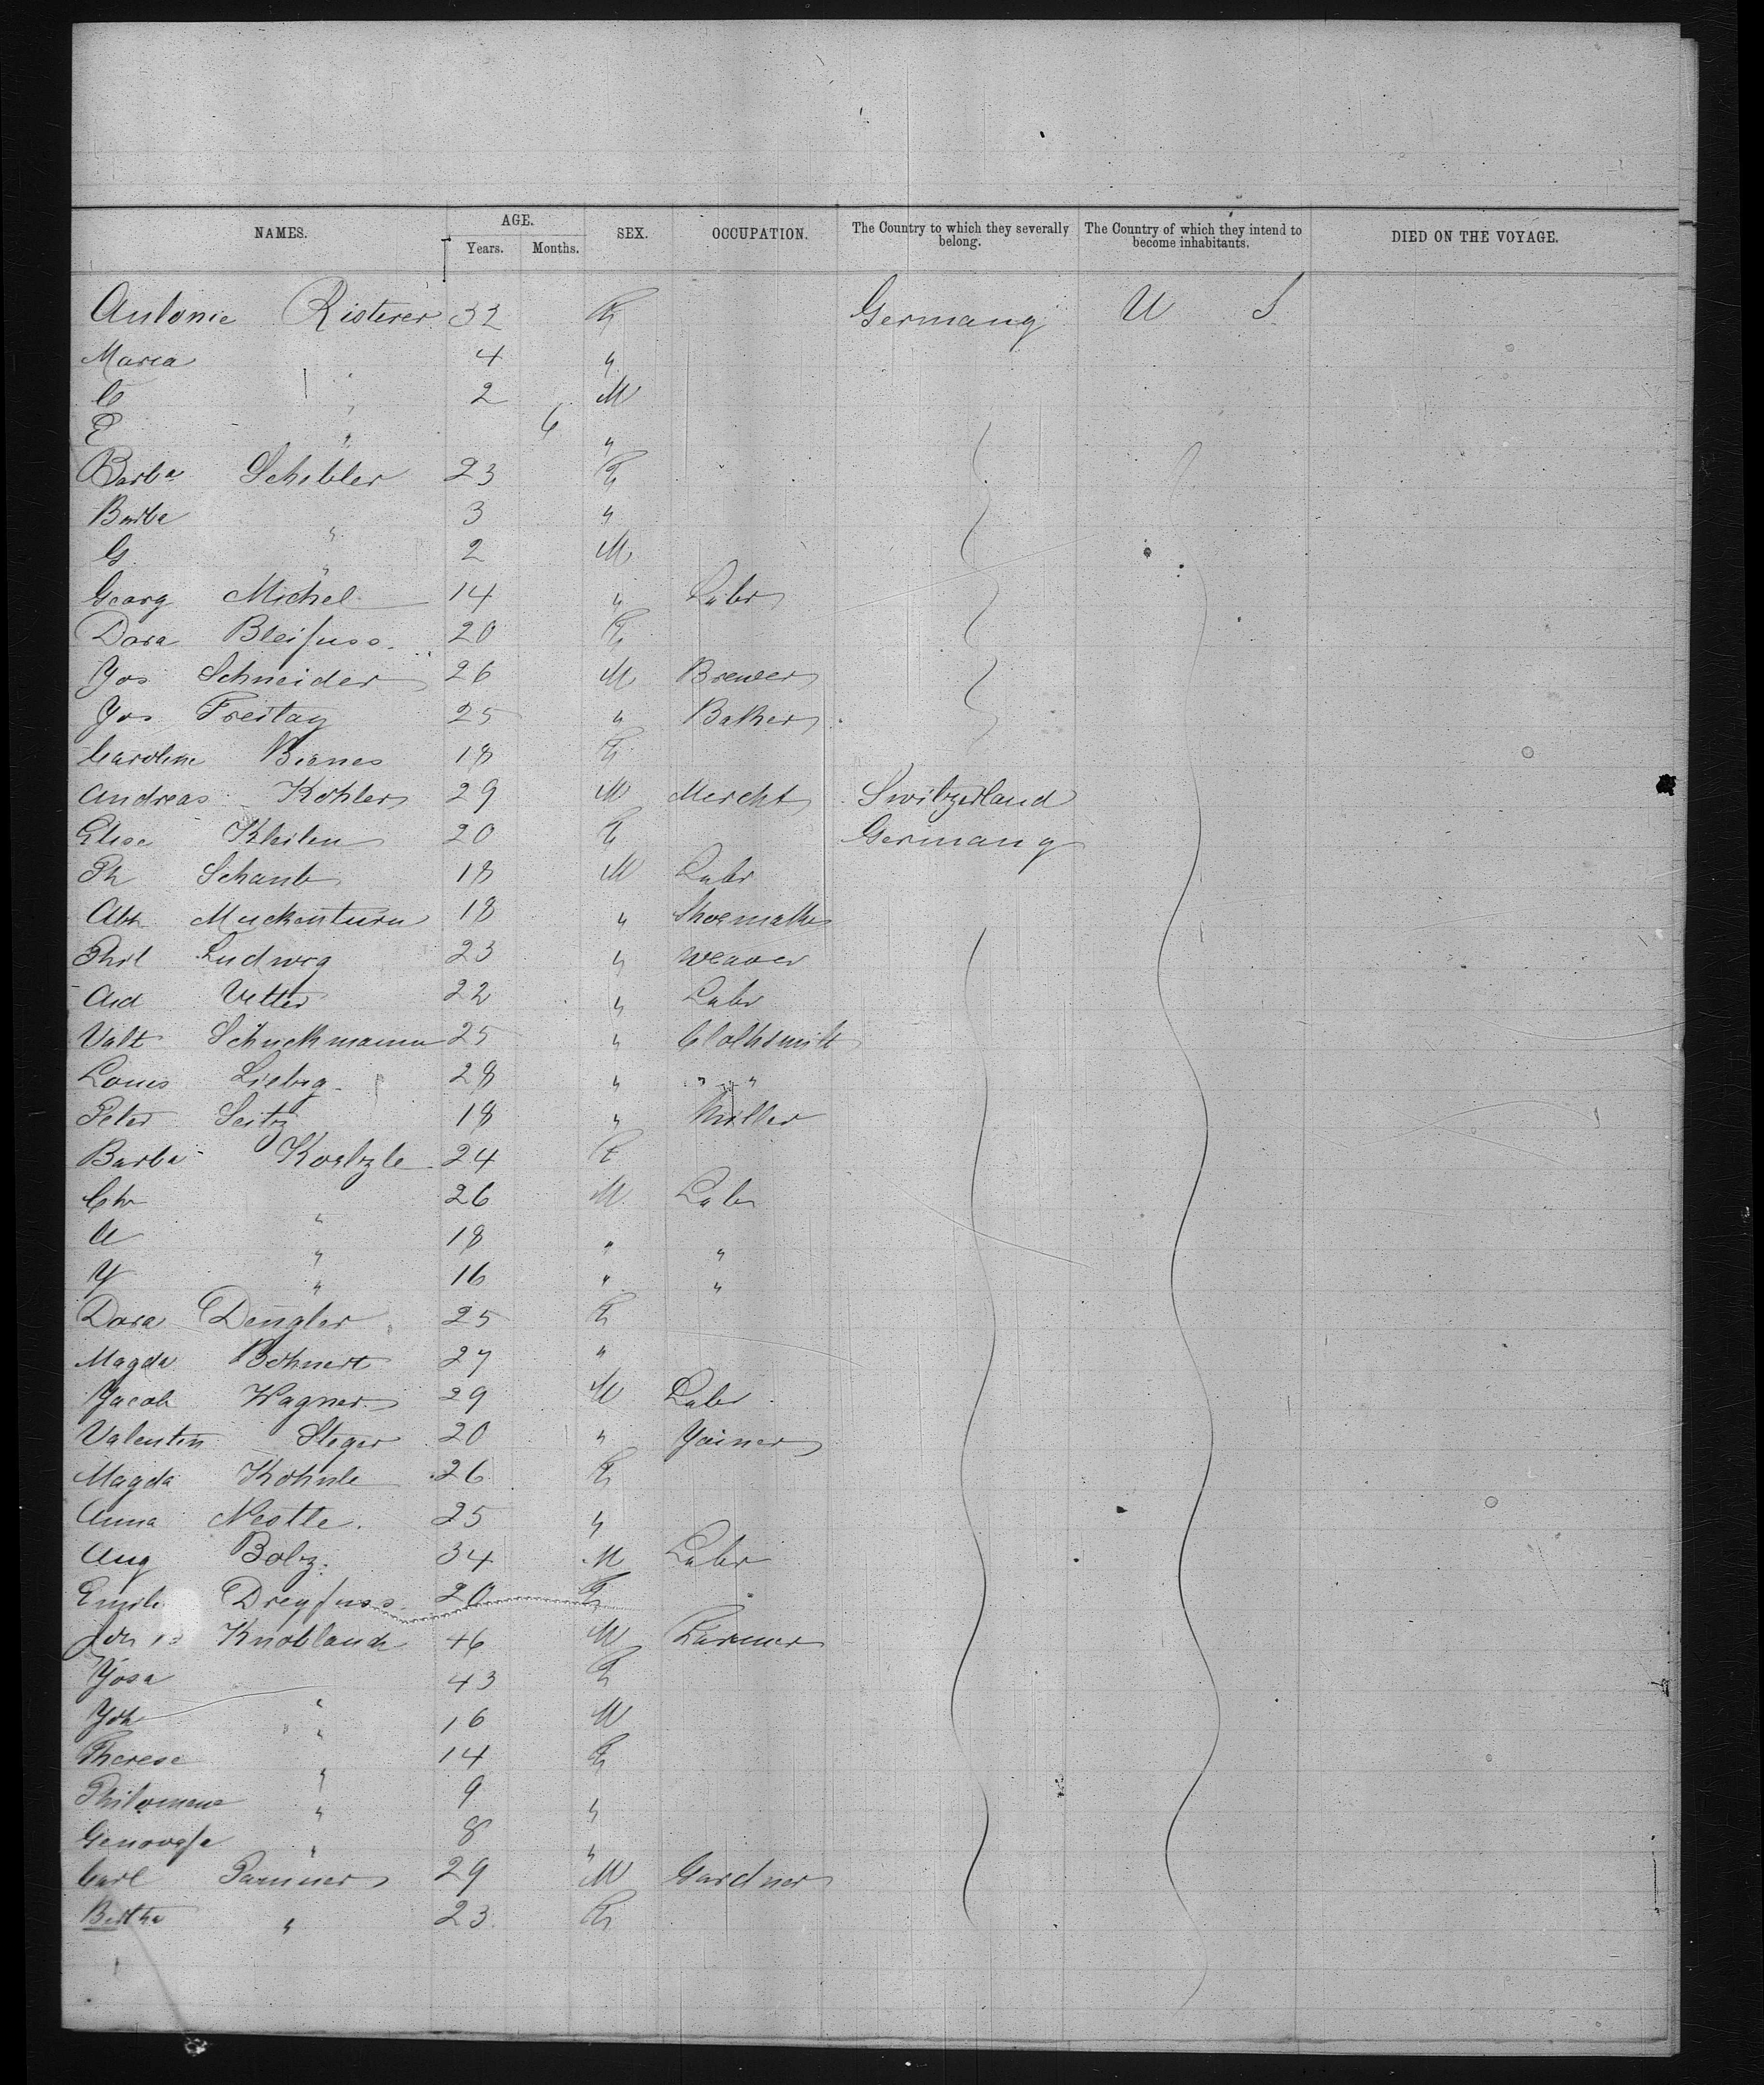 NAMES. AGE. SEX. OCCUPATION. The Country to which they severally belong. The Country of which they intend to become inhabitants. DIED ON THE VOYAGE.
Years. Months.
Antonie Risterer 32 F Germany U S
Maria " 4 "
C " 2 M
E " 6 "
Barba Schibler 23 F
Barba " 3 "
G " 2 M
Georg Michel 14 " Labr
Dora Bleifuss. 20 F
Jos Schneider 26 M Brewer
Jos Freitag 25 " Baker
Caroline 18 F
Andreas Kohler 29 M Mercht Switzerland
Elise 20 F Germany
Ph Schaub 18 M Labr
Abr Muckenturn 18 " Shoemaker
Phil Ludwig 23 " Weaver
Vetter 22 " Labr
Valt Schuckmann 25 " Clothsmith
Louis Liebig 28 " " "
Peter Seitz 18 " Miller
Barba Koelzle 24 F
Chr " 26 M Labr
A " 18 " "
J " 16 " "
Dora Dengler 25 F
Magda Bohnert 27 "
Jacob Wagner 29 M Labr
Valentin Steger 20 " Joiner
Magda Kohnle 26 F
Anna Nestle. 25 "
Aug Bolz. 34 M Labr
Emile Dreyfuss. 20 F
Knoblauch 46 M Farmer
Josa " 43 F
Joh " 16 M
Therese " 14 F
Philomene " 9 "
Genovefa " 8 "
Carl 29 M Gardner
Bertha " 23 F